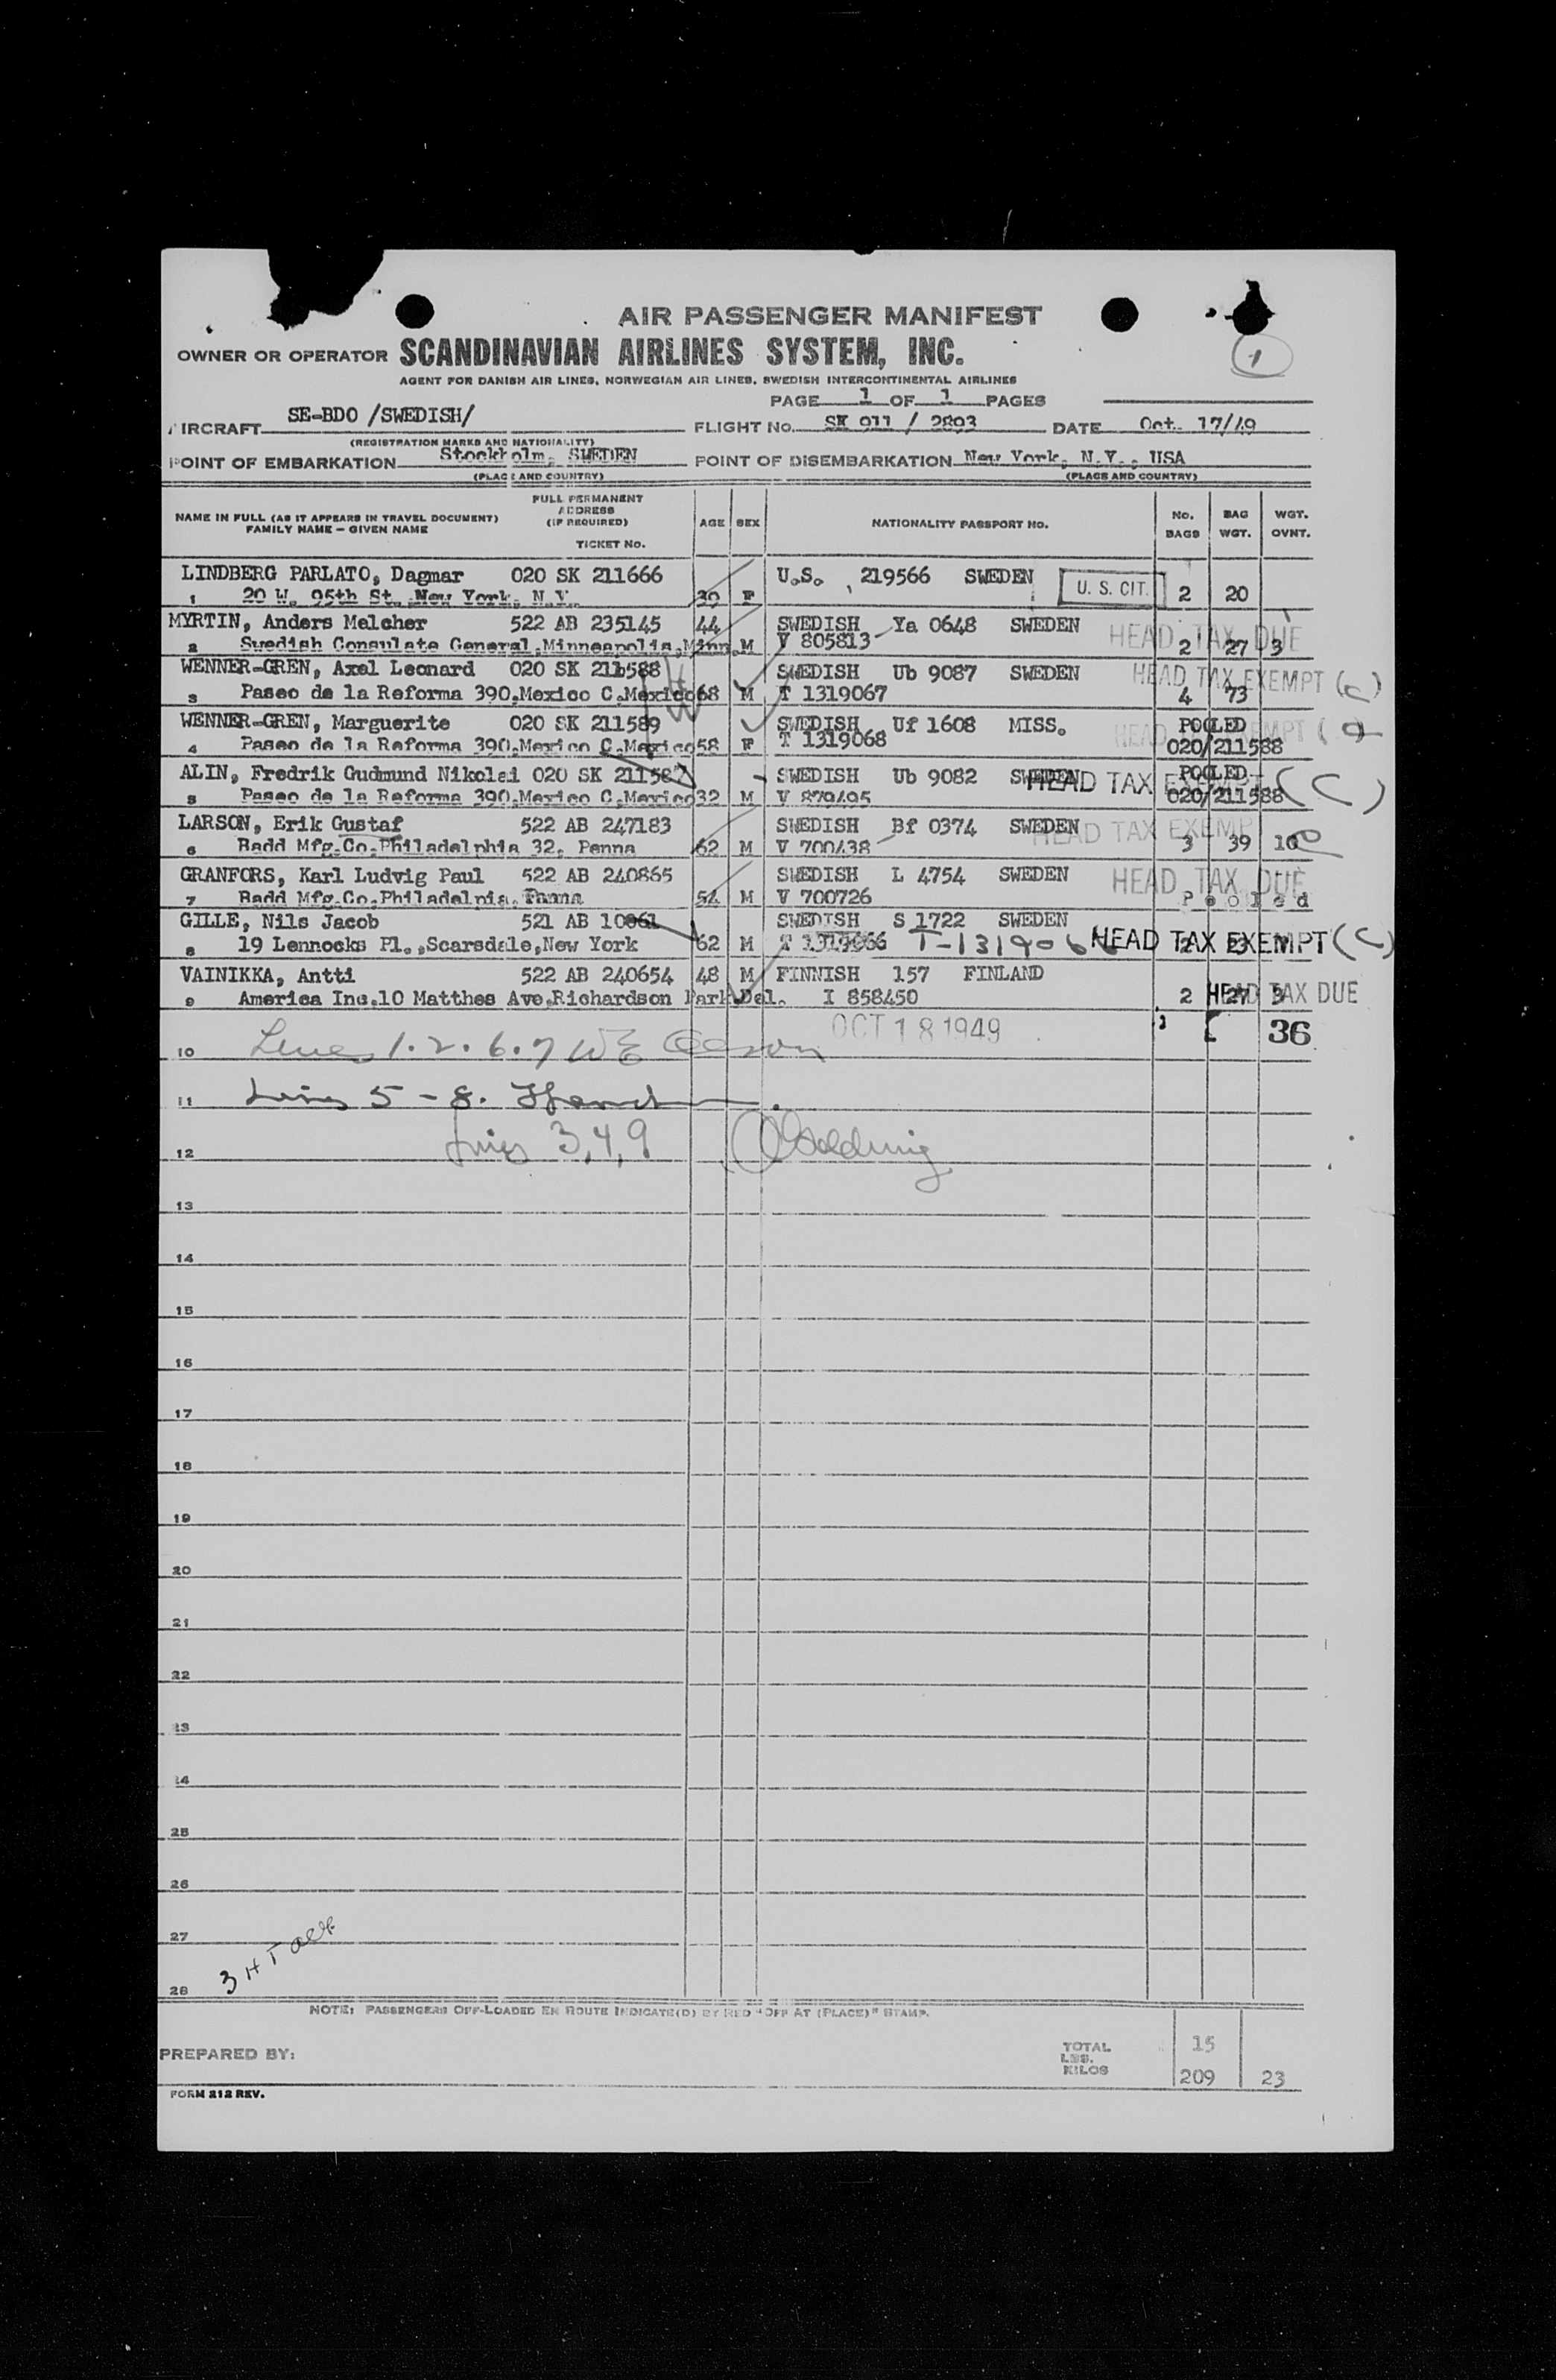 AIR PASSENGER MANIFEST
OWNER OR OPERATOR SCANDINAVIAN AIRLINES SYSTEM, INC.
1
AGENT FOR DANISH AIR LINES, NORWEGIAN AIR LINES, SWEDISH INTERCONTINENTAL AIRLINES
PAGE 1 OF 1 PAGES
IRCRAFT SE-BDO /SWEDISH/ FLIGHT No. SK 911 / 2893 DATE Oct. 17/49
(REGISTRATION MARKS AND NATIONALITY)
POINT OF EMBARKATION Stockholm, SWEDEN POINT OF DISEMBARKATION New York, N.Y., USA
(PLACE AND COUNTRY) (PLACE AND COUNTRY)
NAME IN FULL (AS IT APPEARS IN TRAVEL DOCUMENT) FAMILY NAME – GIVEN NAME
FULL PERMANENT ADDRESS (IF REQUIRED) TICKET No.
AGE SEX NATIONALITY PASSPORT NO. No. BAGS BAG WGT. WGT. OVNT.
LINDBERG PARLATO, Dagmar 020 SK 211666 U.S. 219566 SWEDEN U. S. CIT.
1 20 W. 95th St. New York, N.Y. 39 F 2 20
MYRTIN, Anders Melcher 522 AB 235145 44 SWEDISH Ya 0648 SWEDEN HEAD TAX DUE
2 Swedish Consulate General,Minneapolis,Minn. M V 805813 2 27 3
WENNER-GREN, Axel Leonard 020 SK 211588 SWEDISH Ub 9087 SWEDEN HEAD TAX EXEMPT (C)
3 Paseo de la Reforma 390,Mexico C.Mexico 68 M T 1319067 4 73
WENNER-GREN, Marguerite 020 SK 211589 SWEDISH Uf 1608 MISS. POOLED HEAD TAX EXEMPT
4 Paseo de la Reforma 390,Mexico C.Mexico 58 F T 1319068 020/211588
ALIN, Fredrik Gudmund Nikolai 020 SK 211587 SWEDISH Ub 9082 SWEDEN POOLED HEAD TAX EXEMPT (C)
5 Paseo de la Reforma 390,Mexico C.Mexico 32 M V 879495 020/211588
LARSON, Erik Gustaf 522 AB 247183 SWEDISH Bf 0374 SWEDEN HEAD TAX EXEMP
6 Badd Mfg.Co.Philadelphia 32, Penna 62 M V 700438 3 39 10
GRANFORS, Karl Ludvig Paul 522 AB 240865 SWEDISH L 4754 SWEDEN HEAD TAX DUE
7 Badd Mfg.Co.Philadelpia, Panna 54 M V 700726 P o o l e d
GILLE, Nils Jacob 521 AB 10061 SWEDISH S 1722 SWEDEN
8 19 Lennocks Pl.,Scarsdale,New York 62 M T 1319066 T-1319066 HEAD TAX EXEMPT (C) 2 23
VAINIKKA, Antti 522 AB 240654 48 M FINNISH 157 FINLAND
9 America Inc.10 Matthes Ave.Richardson Park.Del. I 858450 2 27 3 HEAD TAX DUE
OCT 18 1949 36
10 Lines 1. 2. 6. 7
11 Lines 5 - 8.
12 Lines 3, 4, 9
13
14
15
16
17
18
19
20
21
22
23
24
25
26
27
28 3 HT
NOTE: PASSENGERS OFF-LOADED EN ROUTE INDICATE(D) BY RED "OFF AT (PLACE)" STAMP.
PREPARED BY:
TOTAL 15
LBS.
KILOS 209 23
FORM 212 REV.